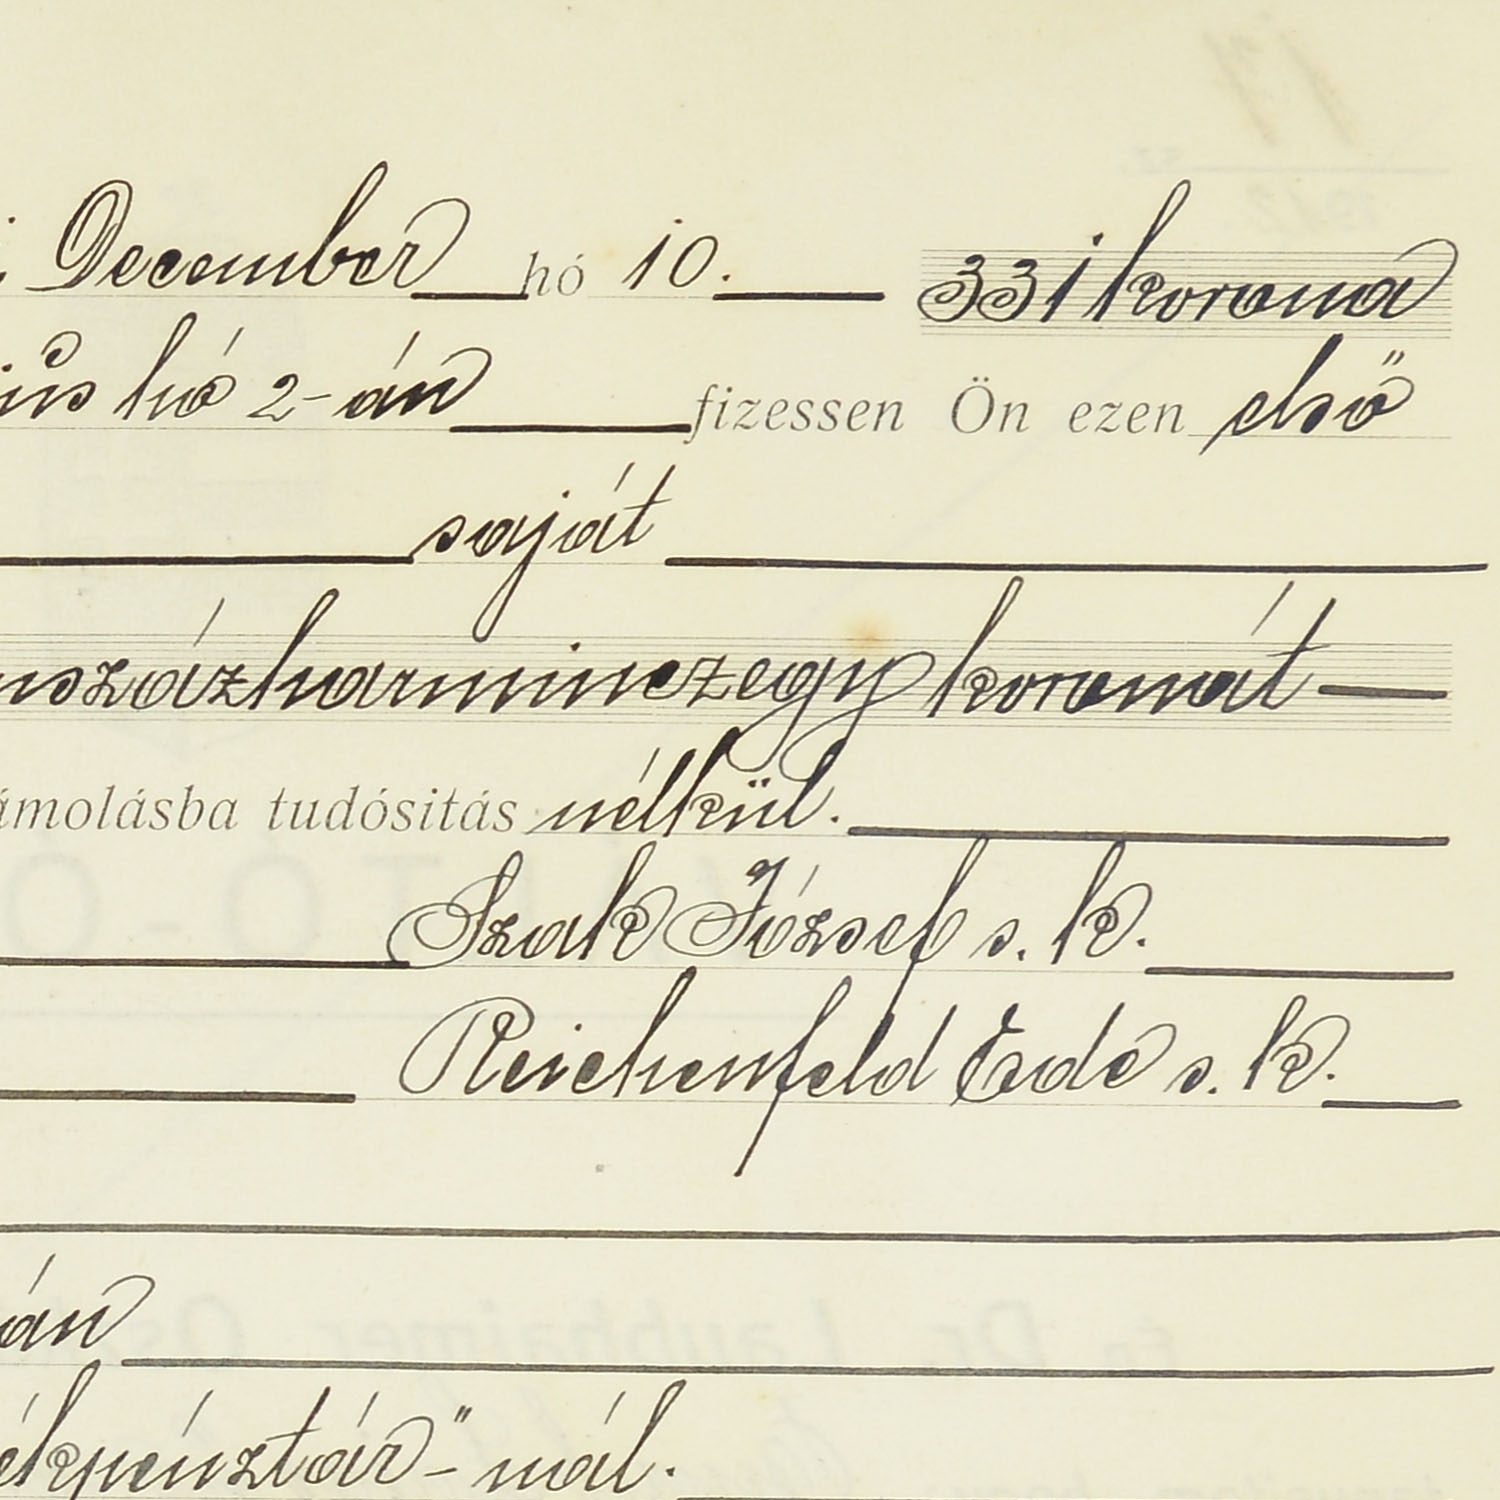 December hó 10. 331 korona
ius hó 2-án fizessen Ön ezen első
saját
mszázharminczegy koronát
ámolásba tudósitás nélkül.
Szak József s. k.
Reichenfeld Ede s. k.
án
ékpénztár"-nál.